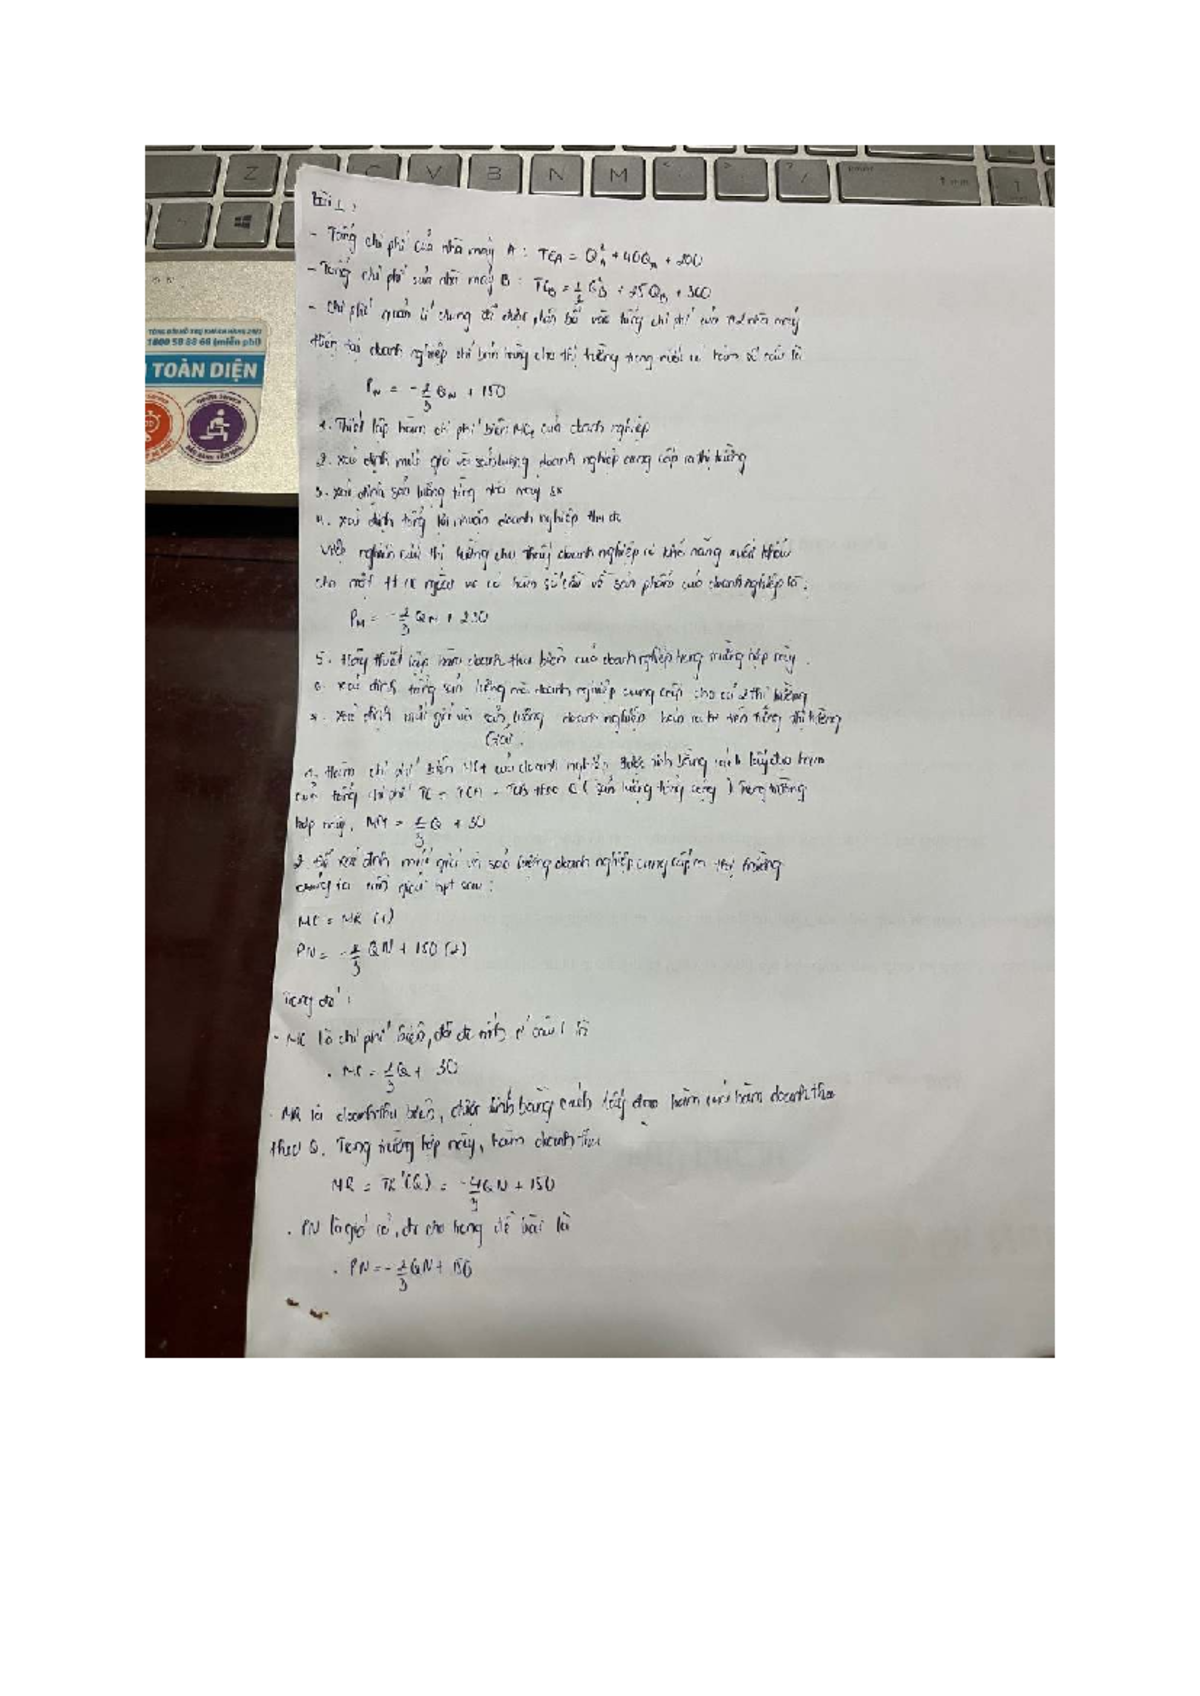 Z C V B N M
TỔNG ĐÀI HỖ TRỢ KHÁCH HÀNG 24/7
1800 58 88 66 (miễn phí)
TOÀN DIỆN
Bài 1,
- Tổng chi phí của nhà máy A : TCA = Q²A + 40QA + 200
- Tổng chi phí của nhà máy B : TCB = 1/2 Q²B + 25QB + 300
- Chi phí quản lí chung đã được phân bổ vào tổng chi phí của 2 nhà máy
Hiện tại doanh nghiệp chỉ bán hàng cho thị trường trong nước có hàm số cầu là
PN = -2/3 QN + 150
1. Thiết lập hàm chi phí biên MCT của doanh nghiệp
2. Xác định mức giá và sản lượng doanh nghiệp cung cấp ra thị trường
3. Xác định sản lượng từng nhà máy sx
4. Xác định tổng lợi nhuận doanh nghiệp thu đc
Việc nghiên cứu thị trường cho thấy doanh nghiệp có khả năng xuất khẩu
cho một và có hàm số cầu về sản phẩm của doanh nghiệp là:
5. Hãy thiết lập hàm doanh thu biên của doanh nghiệp trong trường hợp này.
6. Xác định tổng sản lượng mà doanh nghiệp cung cấp cho cả 2 thị trường
Xác định mức giá và sản lượng doanh nghiệp bán ra trên từng thị trường
Giải
1. Hàm chi phí biên MCT của doanh nghiệp được tính bằng cách lấy đạo hàm
của tổng chi phí theo Q (sản lượng tổng cộng) Trong trường
hợp này, = 1/3 Q + 30
2. Để xác định mức giá và sản lượng doanh nghiệp cung cấp ra thị trường
chúng ta cần giải hpt sau:
MC = MR (1)
PN = -2/3 QN + 150 (2)
Trong đó:
- MC là chi phí biên, đã đc tính ở câu 1 là
. MC = 1/3 Q + 30
- MR là doanh thu biên, được tính bằng cách lấy đạo hàm của hàm doanh thu
theo Q. Trong trường hợp này, hàm doanh thu
MR = TR'(Q) = -4/3 QN + 150
. PN là giá cả, đc cho trong đề bài là
. PN = -2/3 QN + 150